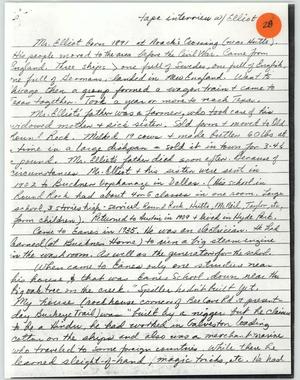 Tape interview w/ Elliot
28
Mr. Elliot born 1891 at Noack's Crossing (near Hutto).
His people moved to the area before the Civil War. Came from
England. Three ships; one full of Swedes, one full of English,
one full of Germans, landed in New England. Went to
Chicago then a group formed a wagon train & came to
Texas together. Took a year or more to reach Texas.
Mr. Elliot's father was a farmer, who took care of his
widowed mother & six sisters. Sold farm & moved to Old
Round Rock. Milked 19 cows & made butter 60 lbs at
a time in a large dishpan - sold it in town for 3-4¢
a pound. Mr. Elliot's father died soon after. Because of
circumstances Mr. Elliot & his sister were sent in
1902 to Buckner Orphanage in Dallas. (His school in
Round Rock had about 4 or 5 classes in one room. Large
school, 2 stories high - carried Round Rock, Hutto, McNeil, Taylor, etc.,
farm children). Returned to Austin in 1909 & lived in Hyde Park.
Came to Eanes in 1935. He was an electrician. He had
learned (at Buckner Home) to run a big steam engine
in the washroom. As well as the generators for the school.
When came to Eanes only one structure near
his house & that was Eanes School down near the
big oak tree on the creek. "Spiller's didn't built yet.
My house (rockhouse corner of Bee Cave Rd & present-
day Buckeye Trail) was "built by a nigger but he claimed
to be a Hindu, he had worked in Galveston loading
cotton on the ships and also was a merchant marine
who traveled to some foreign countries. While there he
learned sleight-of-hand, magic tricks, etc. He had